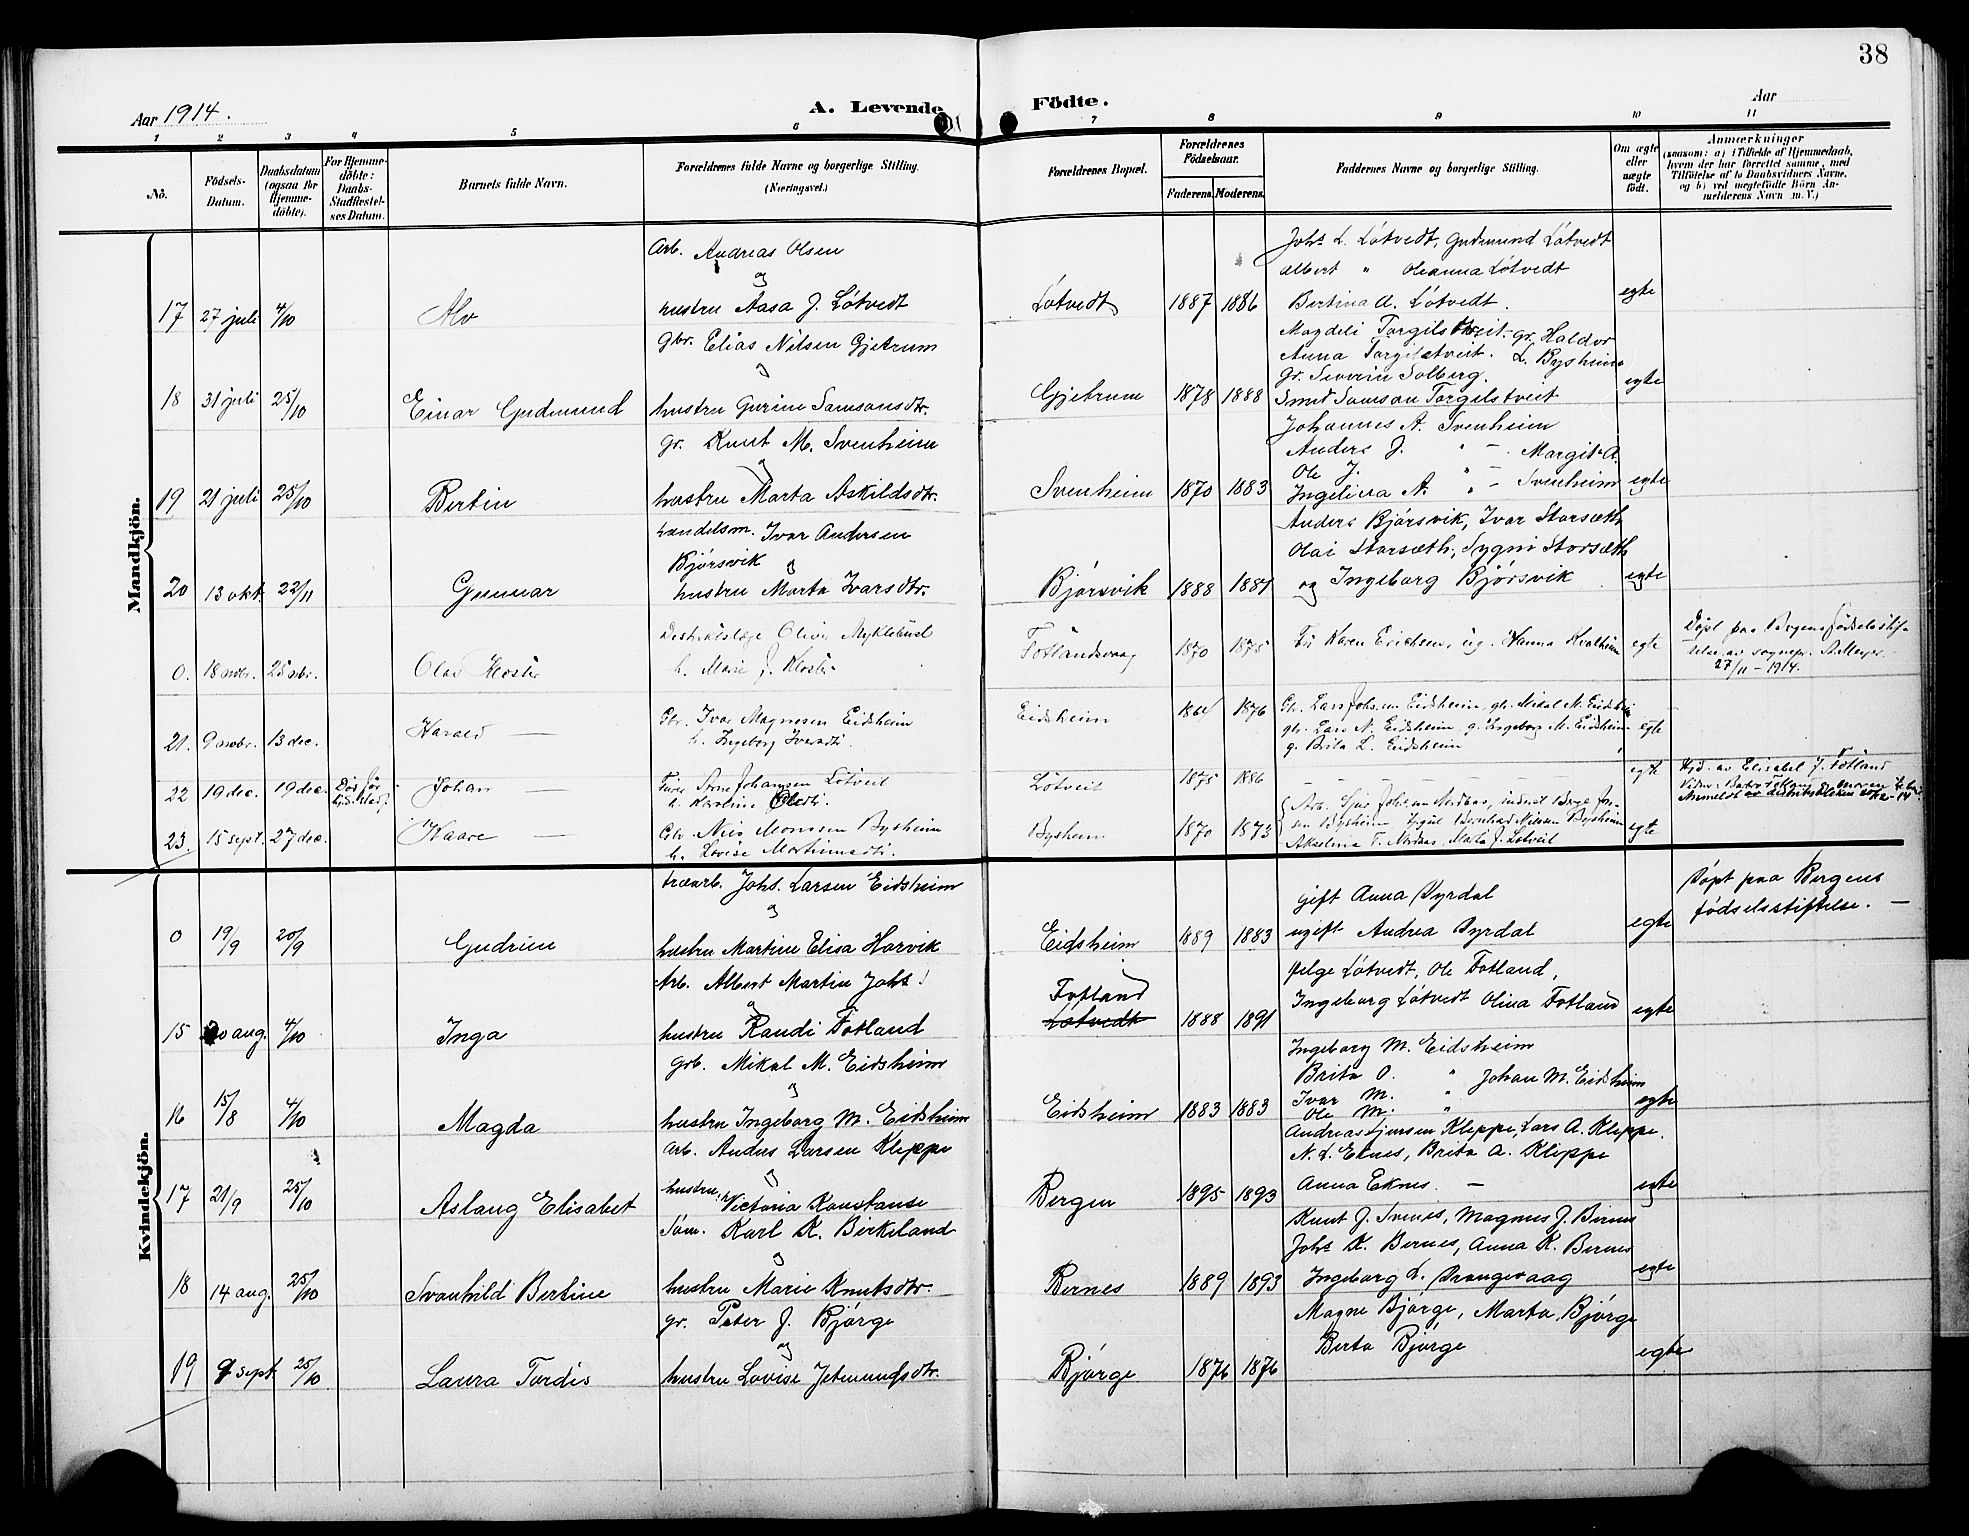 38
Aar 1914.
A. Levende Födte.
Aar
1 2 3 4 5 6 7 8 9 10 11
No.
Födsels-Datum.
Daabsdatum (ogsaa for Hjemmedöbte).
For Hjemmedöbte: Daabs-Stadfæstelses Datum.
Barnets fulde Navn.
Forældrenes fulde Navne og borgerlige Stilling. (Næringsvei.)
Forældrenes Bopæl.
Forældrenes Födselsaar.
Faderens. Moderens.
Faddernes Navne og borgerlige Stilling.
Om ægte eller uægte födt.
Anmærkninger
(saasom: a) i Tilfælde af Hjemmedaab, hvem der har forrettet samme, med Tilföielse af to Daabsvidners Navne, og b) ved uægtefödte Börn Anmelderens Navn m. V.)
Mandkjön.
17 27 juli 4/10 Alv
Arb. Andreas Olsen
og
hustru Aasa J. Lótvedt
Lótvedt 1887 1886
Johs L. Lótvedt, Gudmund Lótvedt
Albert " Oleanna Lótvedt
Bertina A. Lótvedt.
egte
18 31 juli 25/10 Einar Gudmund
Gbr. Elias Nilsen Gjetrum
og
hustru Gurine Samsonsdtr.
Gjetrum 1878 1888
Magdeli Torgilstveit - gr. Haldor
Anna Torgilstveit. L. Bysheim
Gr. Severin Solberg.
Smed Samson Torgilstveit
egte
19 21 juli 25/10 Bertin
gr. Knut M. Svenheim
og
hustru Marta Askildsdtr.
Svenheim 1870 1883
Johannes A. Svenheim
Anders J. " - Margit A.
Ole J. " -
Ingelina A. " - Svenheim
egte
20 13 okt. 22/11 Gunnar
handelsm. Ivar Andersen
Bjórsvik og
hustru Marta Ivarsdtr.
Bjórsvik 1888 1887
Anders Bjórsvik, Ivar Storsæth
Olai Storsæth, Sygni Storsæth
og Ingeborg Bjórsvik
egte
0. 18 nvbr. 25 nvbr. Olav Kloster
Distriktslæge Oliver Myklebust
h. Marie J. Kloster
Fotlandsvaag 1870 1875
Fru Karen Erichsen, ug. Hanna Kvalheim
egte
Döpt paa Bergens födselsstiftelse av sognepr. A. Meyer
27/11 - 1914.
21. 9 nvbr. 13 dec. Harald —
Gbr. Ivar Magnesen Eidsheim
h. Ingeborg Iversdtr.
Eidsheim 1864 1876
Gbr. Lars Johs.sen Eidsheim, gbr. Mikal M. Eidsheim
gbr. Lars N. Eidsheim, g. Ingeborg M. Eidsheim
g. Brita L. Eidsheim
egte
22 19 dec. 19 dec. Död för
Johan —
Arne Johansen Lötveit
h. Karoline Olsdtr.
Lötveit 1875 1886
— — — —
egte
Hjd. av Elisabet J. Fotland
23. 15 sept. 27 dec. Kaare —
Gbr. Nils Monssen Bysheim
h. Lovise Mortinusdtr.
Bysheim 1870 1873
Bysheim Bernhard Nilssen Bysheim
Akselina T. Nordaas, Marta J. Lötveit
egte
Kvindekjön.
0 19/9 20/9 Gudrun
træarb. Johs. Larsen Eidsheim
og
hustru Martine Elisa Horvik
Eidsheim 1889 1883
gift Anna Dyrdal
ugift Andrea Dyrdal
egte
Döpt paa Bergens
födselsstiftelse. —
15 20 aug. 4/10 Inga
Arb. Albert Martin Johs!
og
hustru Randi Fotland
Fotland
Lótvedt 1888 1891
Helge Lótvedt, Ole Fotland,
Ingeborg Lótvedt Olina Fotland
egte
16 15/8 4/10 Magda
Grb. Mikal M. Eidsheim
og
hustru Ingeborg M. Eidsheim
Eidsheim 1883 1883
Ingeborg M. Eidsheim
Brita O. " Johan M. Eidsheim
Ivar M. "
Ole M. "
egte
17 21/9 25/10 Aslaug Elisabet
Arb. Anders Larsen Kleppe
og
hustru Victoria Konstanse
Bergen 1895 1893
Andreas Sjursen Kleppe, Lars A. Kleppe.
N. L. Eknes, Brita A. Kleppe
Anna Eknes. —
egte
18 14 aug. 25/10 Svanhild Bertine
Söm. Karl K. Birkeland
og
hustru Marie Knutsdtr.
Bernes 1889 1893
Knut J. Svenes, Magnus J. Birnes
Johs K. Bernes, Anna K. Bernes
Ingeborg L. Drangevaag
egte
19 9 sept. 25/10 Laura Tordis
gr. Peter J. Bjórge
og
hustru Lovise Jetmundsdtr.
Bjórge 1876 1876
Magne Bjórge, Marta Bjórge
Berta Bjórge
egte